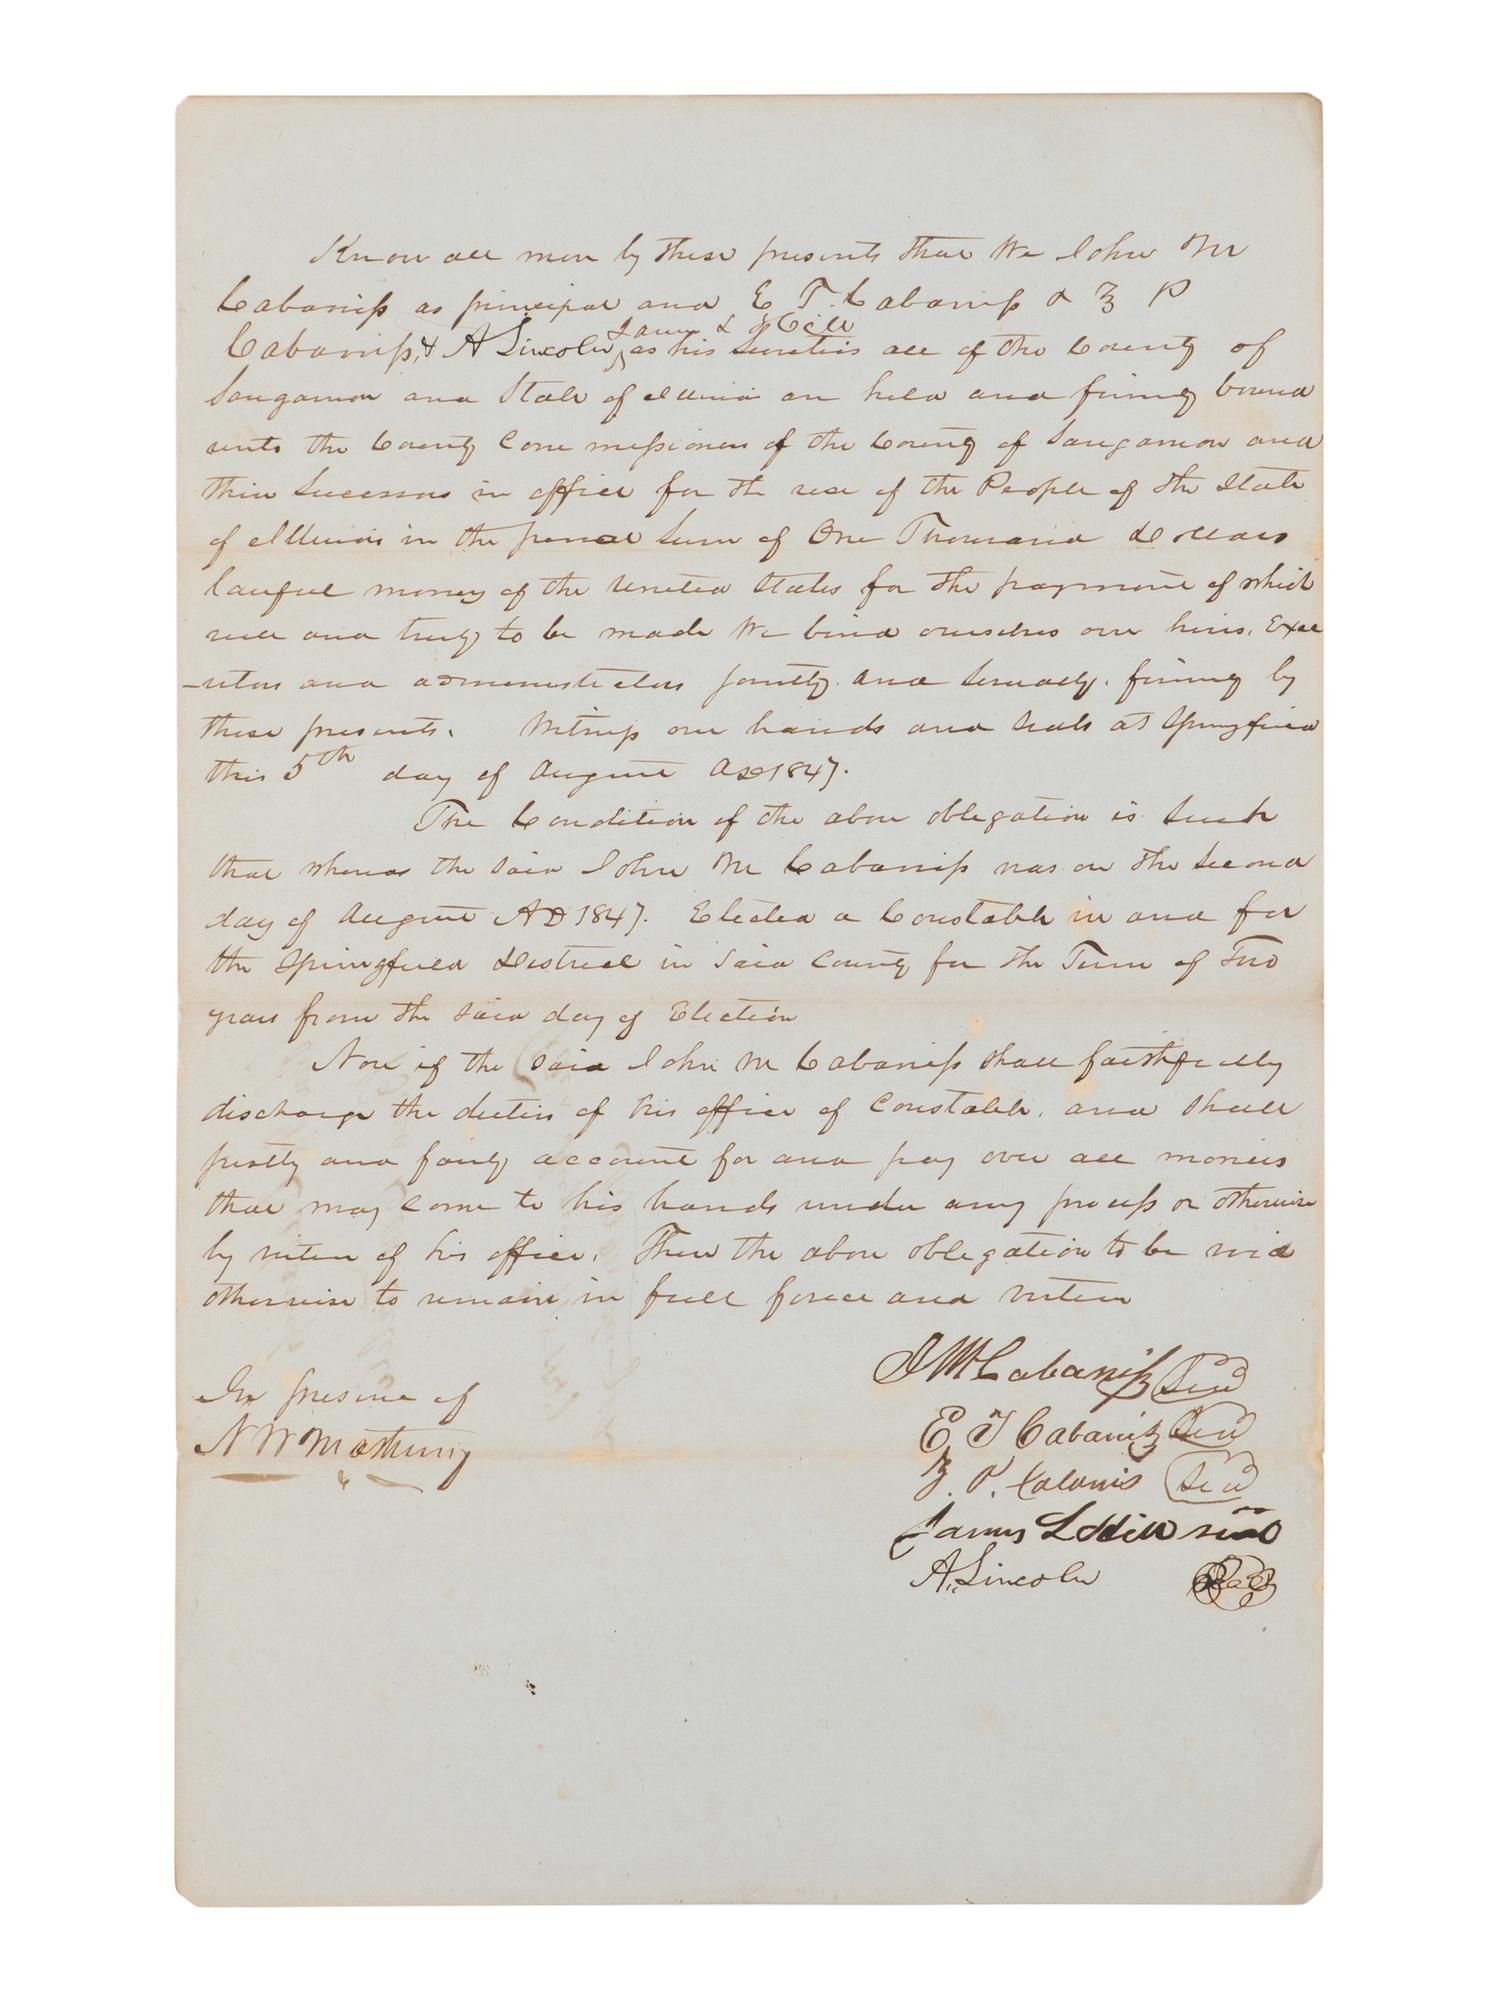 Know all men by these presents that We John M
Cabaniss as principal and E T. Cabaniss & Z P
James L Hill
Cabaniss, & A Lincoln as his Sureties all of the County of
Sangamon and State of Illinois are held and firmly bound
unto the County Commissioners of the County of Sangamon and
their Successors in office for the use of the People of the State
of Illinois in the penal Sum of One Thousand Dollars
lawful money of the United States for the payment of which
well and truly to be made We bind ourselves our heirs, Exec
-utors and administrators jointly and Severally. firmly by
these presents. Witness our hands and Seals at Springfield
this 5th day of August AD 1847.
The Condition of the above obligation is Such
that whereas the Said John M Cabaniss was on the Second
day of August AD 1847. Elected a Constable in and for
the Springfield District in Said County for the Term of Two
years from the Said day of Election
Now if the Said John M Cabaniss Shall faithfully
discharge the duties of his office of Constable, and Shall
justly and fairly account for and pay over all monies
that may come to his hands under any process or otherwise
by virtue of his office, Then the above obligation to be void
otherwise to remain in full force and virtue
J M Cabaniss Seal
In presence of
E T Cabaniss Seal
N W Matheny
Z. P. Cabanis Seal
James L Hill seal
A. Lincoln Seal